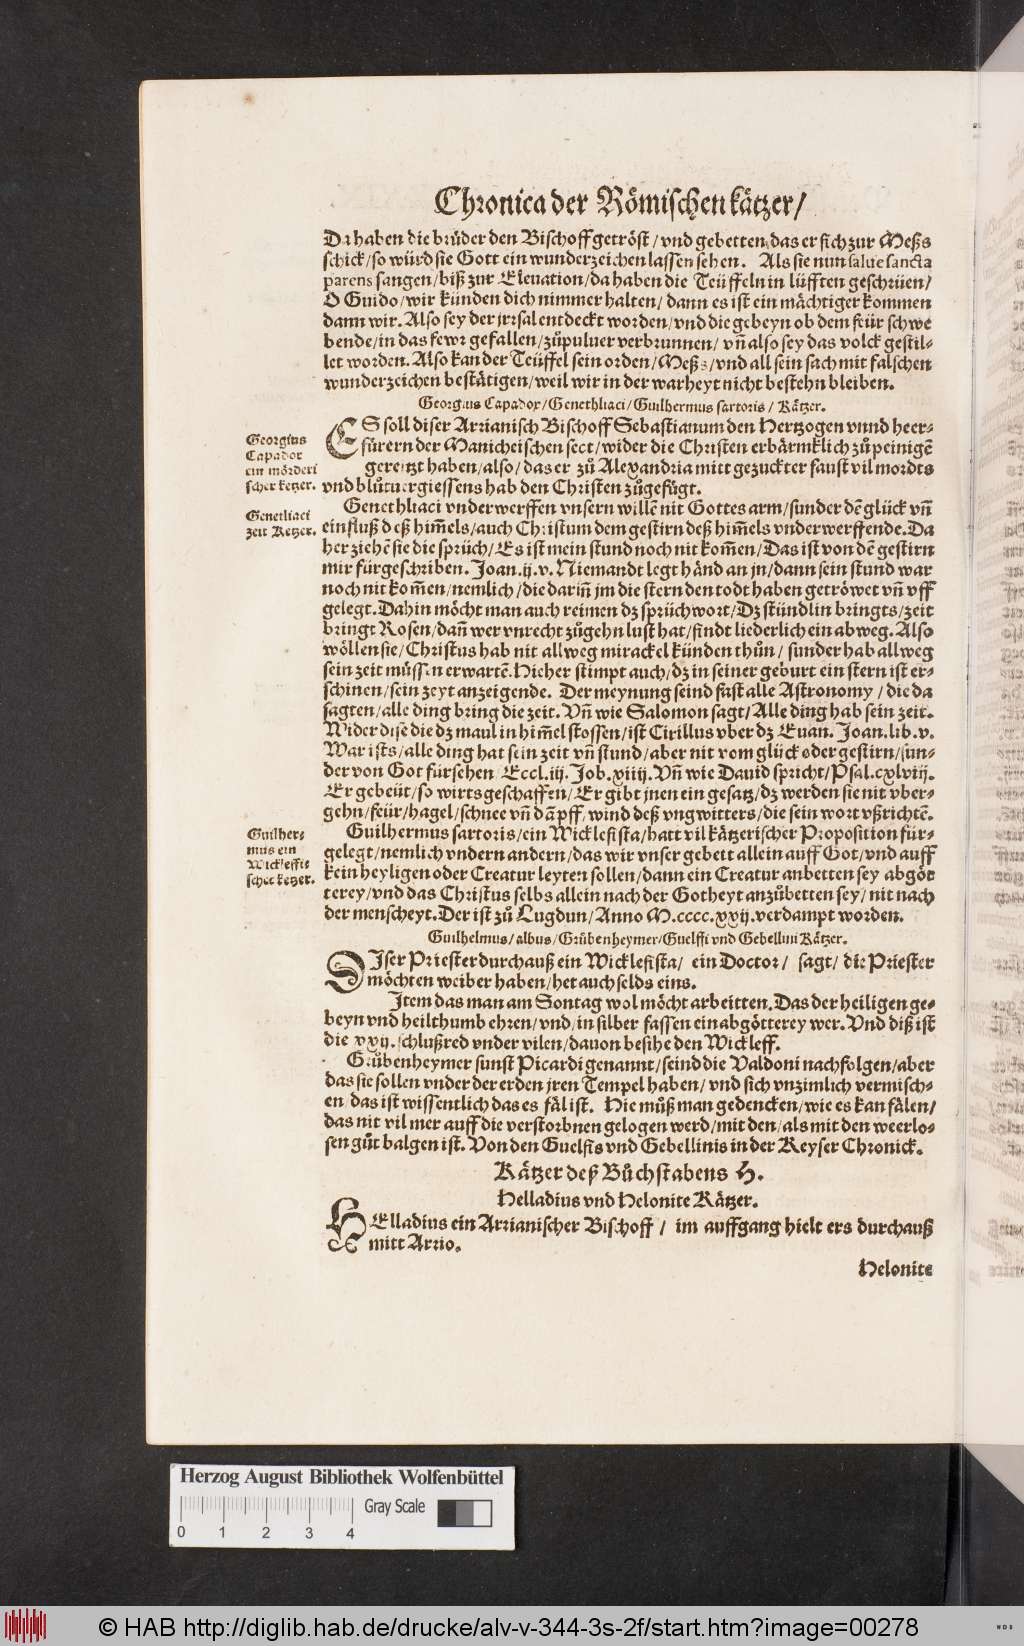 Chronica der Römischen kätzer/
Da haben die brüder den Bischoff getröst/vnd gebetten/das er sich zur Meßs
schick/so würd sie Gott ein wunderzeichen lassen sehen. Als sie nun salue sancta
parens sangen/biß zur Eleuation/da haben die Teüffeln in lüfften geschrüen/
O Guido/wir künden dich nimmer halten/dann es ist ein mächtiger kommen
dann wir. Also sey der jrrsal entdeckt worden/vnd die gebeyn ob dem feür schwe
bende/in das fewr gefallen/zůpuluer verbrunnen/vñ also sey das volck gestil-
let worden. Also kan der Teüffel sein orden/Meßs/vnd all sein sach mit falschen
wunderzeichen bestätigen/weil wir in der warheyt nicht bestehn bleiben.
Georgius Capadox/Genethliaci/Guilhermus sartoris/Kätzer.
Georgius
Capador
ein mörderi
scher ketzer.
ES soll diser Arrianisch Bischoff Sebastianum den Hertzogen vnnd heer-
fürern der Manicheischen sect/wider die Christen erbärmklich zů peinigē
gereitzt haben/also/das er zů Alexandria mitt gezuckter faust vil mordts
vnd blůtuergiessens hab den Christen zůgefügt.
Genetliaci
zeit Ketzer.
Genethliaci vnderwerffen vnsern willē nit Gottes arm/sunder dē glück vñ
einfluß deß him̄els/auch Christum dem gestirn deß him̄els vnderwerffende. Da
her ziehē sie die sprüch/Es ist mein stund noch nit kom̄en/Das ist von dē gestirn
mir fürgeschriben. Joan.ij.v. Niemandt legt händ an jn/dann sein stund war
noch nit kom̄en/nemlich/die darin̄ jm die stern den todt haben getröwet vñ vff
gelegt. Dahin möcht man auch reimen dz sprüchwort/Dz stündlin bringts/zeit
bringt Rosen/dañ wer vnrecht zůgehn lust hat/findt liederlich ein abweg. Also
wöllen sie/Christus hab nit allweg mirackel künden thůn/sunder hab allweg
sein zeit müssen erwartē. Hieher stimpt auch/dz in seiner geburt ein stern ist er-
schinen/sein zeyt anzeigende. Der meynung seind fast alle Astronomy/die da
sagten/alle ding bring die zeit. Vñ wie Salomon sagt/Alle ding hab sein zeit.
Wider dise die dz maul in him̄el stossen/ist Cirillus vber dz Euan. Joan.lib.v.
War ists/alle ding hat sein zeit vñ stund/aber nit vom glück oder gestirn/sun-
der von Got fürsehen/Eccl.iij. Job.xiiij. Vñ wie Dauid spricht/Psal.cxlvij.
Er gebeüt/so wirts geschaffen/Er gibt jnen ein gesatz/dz werden sie nit vber-
gehn/feür/hagel/schnee vñ dāpff/wind deß vngwitters/die sein wort vßrichtē.
Guilher-
mus ein
Wickleffi-
scher ketzer.
Guilhermus sartoris/ein Wicklefista/hatt vil kätzerischer Proposition für-
gelegt/nemlich vndern andern/das wir vnser gebett allein auff Got/vnd auff
kein heyligen oder Creatur leyten sollen/dann ein Creatur anbetten sey abgöt
terey/vnd das Christus selbs allein nach der Gotheyt anzůbetten sey/nit nach
der menscheyt. Der ist zů Lugdun/Anno M.cccc.xxij.verdampt worden.
Guilhelmus/albus/Grůbenheymer/Guelffi vnd Gebellini Kätzer.
DIser Priester durchauß ein Wicklefista/ ein Doctor/ sagt/die Priester
möchten weiber haben/het auch selds eins.
Item das man am Sontag wol möcht arbeitten. Das der heiligen ge-
beyn vnd heilthumb ehren/vnd/in silber fassen ein abgötterey wer. Vnd diß ist
die xxij.schlußred vnder vilen/dauon besihe den Wickleff.
Grůbenheymer sunst Picardi genannt/seind die Valdoni nachfolgen/aber
das sie sollen vnder der erden jren Tempel haben/vnd sich vnzimlich vermisch-
en/das ist wissentlich das es fäl ist. Hie můß man gedencken/wie es kan fälen/
das nit vil mer auff die verstorbnen gelogen werd/mit den/als mit den weerlo-
sen gůt balgen ist. Von den Guelfis vnd Gebellinis in der Keyser Chronick.
Kätzer deß Bůchstabens H.
Helladius vnd Helonite Kätzer.
HElladius ein Arrianischer Bischoff/ im auffgang hielt ers durchauß
mitt Arrio.
Helonite
Herzog August Bibliothek Wolfenbüttel
Gray Scale
0 1 2 3 4
© HAB http://diglib.hab.de/drucke/alv-v-344-3s-2f/start.htm?image=00278